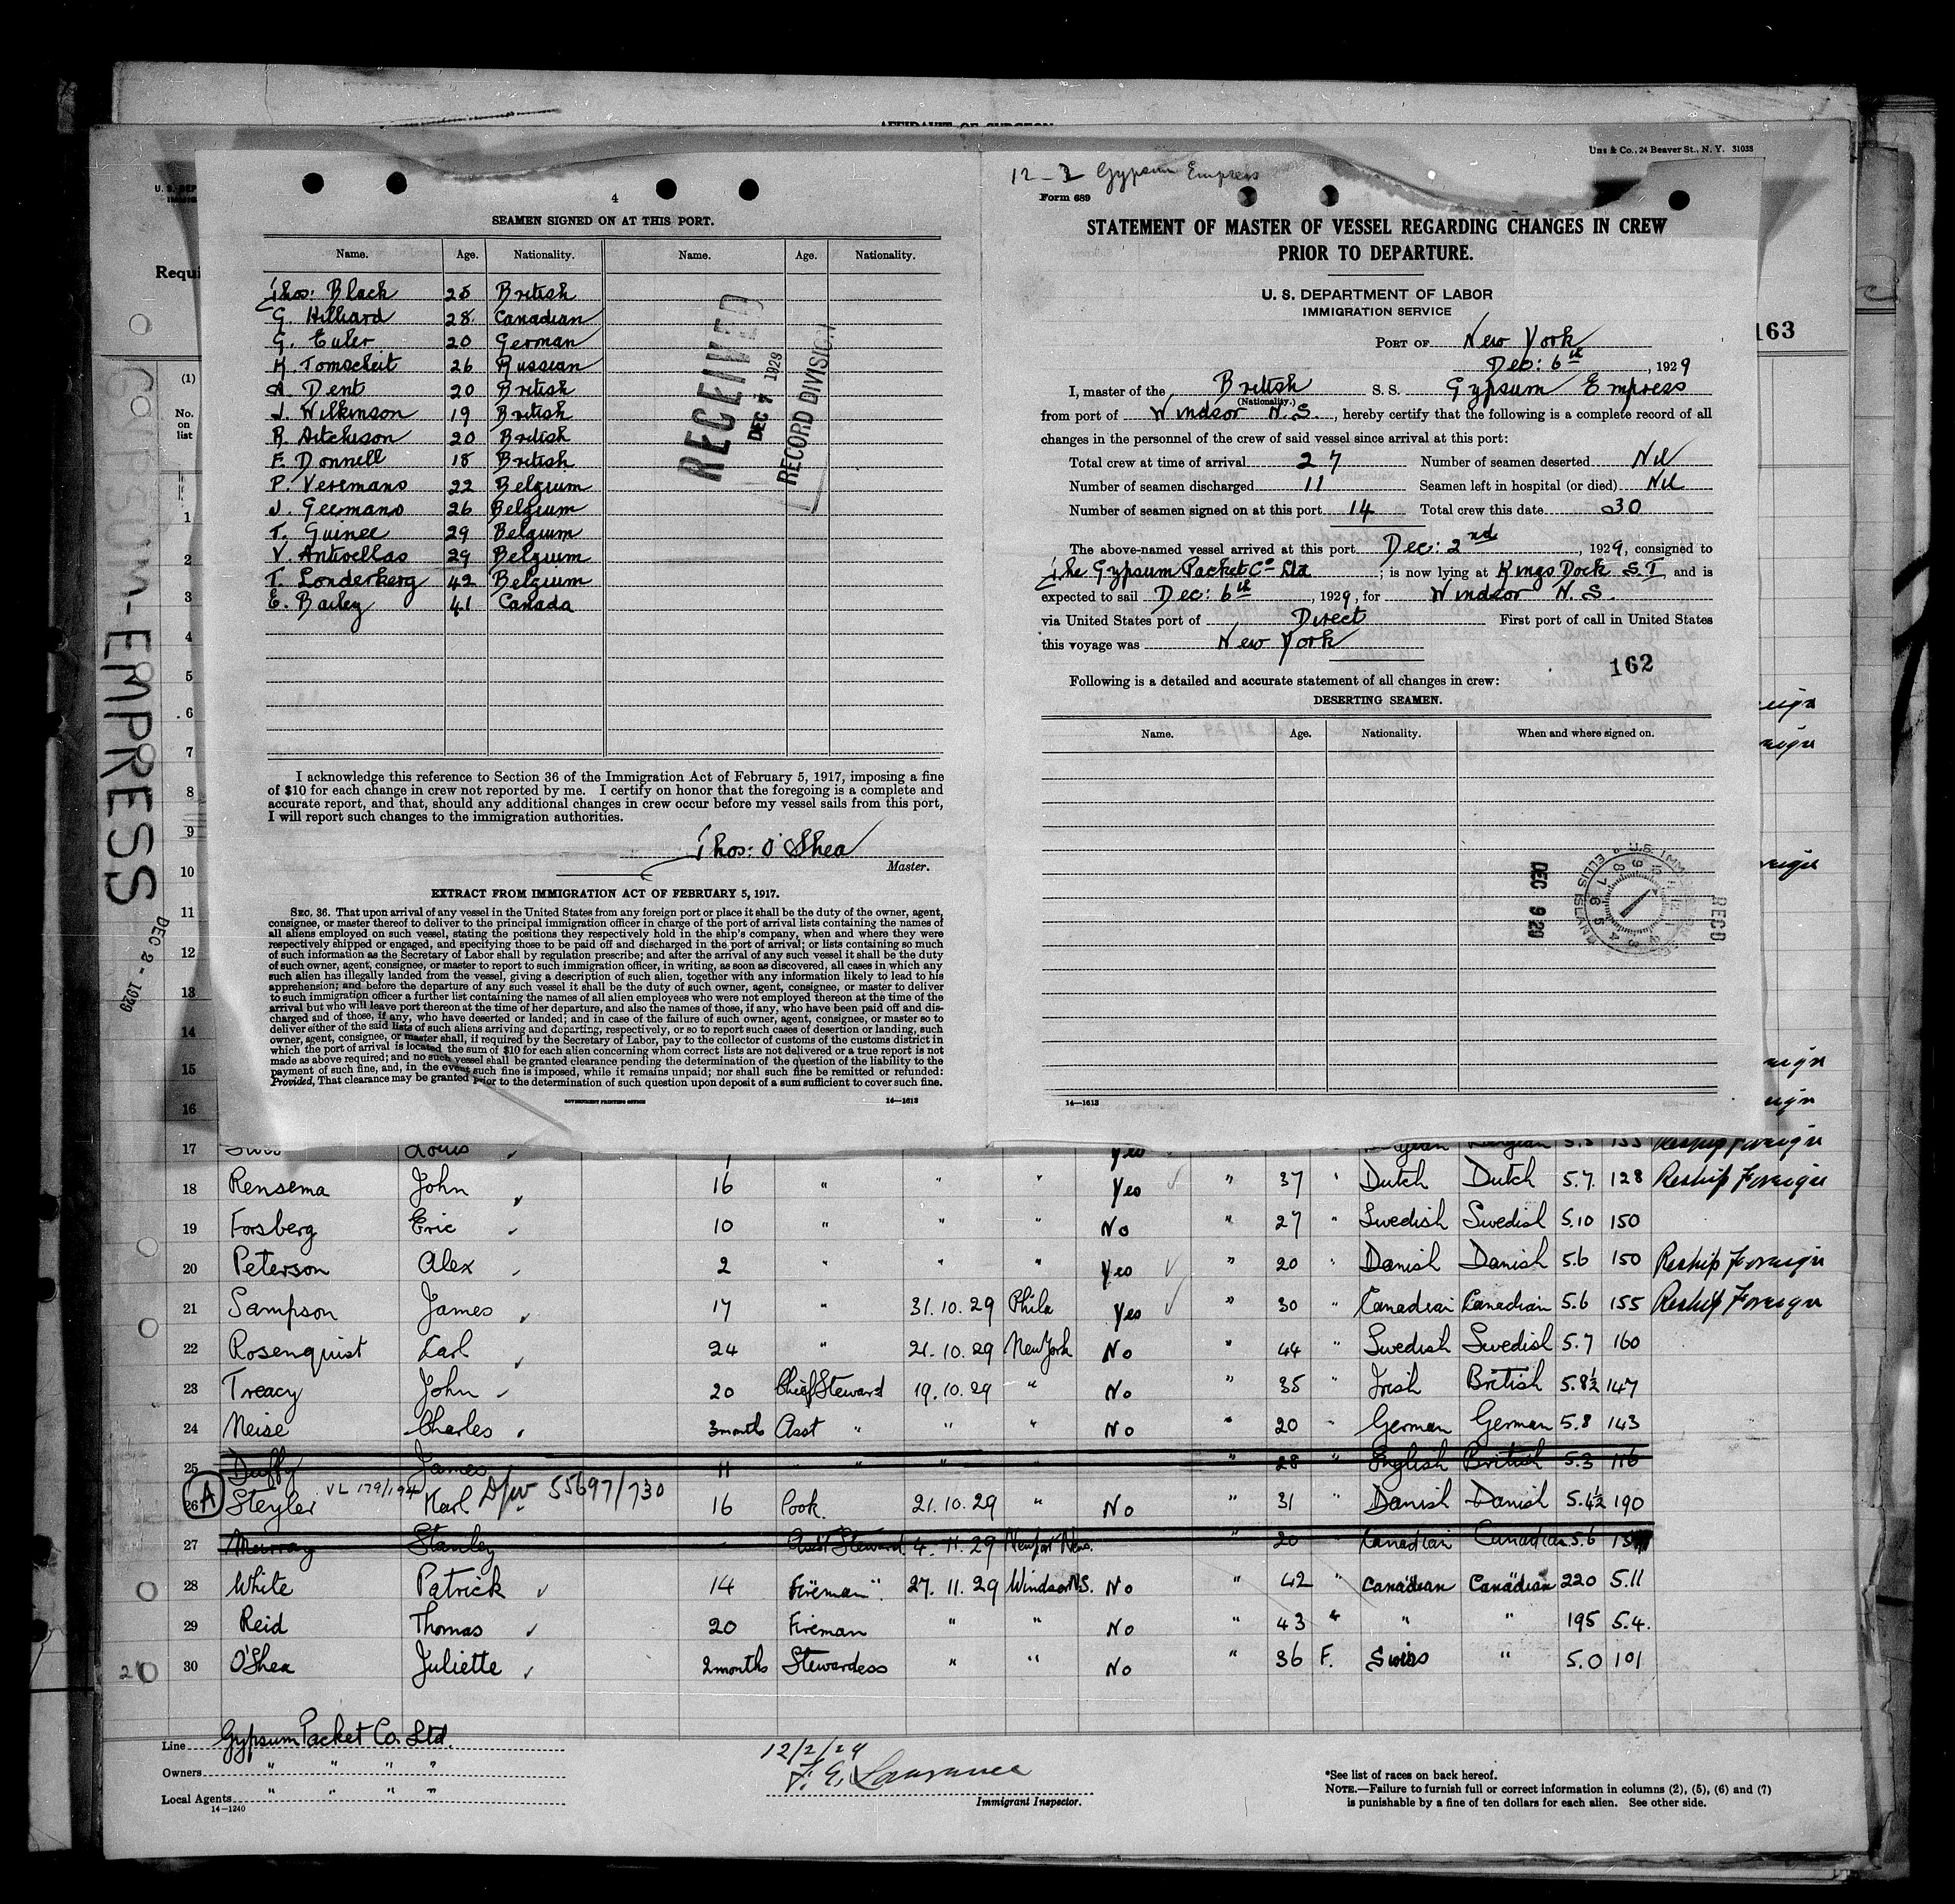 AFFIDAVIT OF SURGEON
Uns & Co., 24 Beaver St., N. Y. 31033
4
SEAMEN SIGNED ON AT THIS PORT.
Name. Age. Nationality. Name. Age. Nationality.
Thos: Black 25 British
G. Hilliard 28 Canadian
G. Euler 20 German
K Tomscheit 26 Russian
A. Dent 20 British
J. Wilkinson 19 British
R. Aitchison 20 British
F. Donnell 18 British
P. Veremans 22 Belgium
J. Geemans 26 Belgium
T. Guinee 29 Belgium
V. Antvellas 29 Belgium
T. Londerkerg 42 Belgium
E. Bailey 41 Canada
RECEIVED
DEC 7 1929
RECORD DIVISION
I acknowledge this reference to Section 36 of the Immigration Act of February 5, 1917, imposing a fine
of $10 for each change in crew not reported by me. I certify on honor that the foregoing is a complete and
accurate report, and that, should any additional changes in crew occur before my vessel sails from this port,
I will report such changes to the immigration authorities.
Thos: O'Shea
Master.
EXTRACT FROM IMMIGRATION ACT OF FEBRUARY 5, 1917.
SEC. 36. That upon arrival of any vessel in the United States from any foreign port or place it shall be the duty of the owner, agent,
consignee, or master thereof to deliver to the principal immigration officer in charge of the port of arrival lists containing the names of
all aliens employed on such vessel, stating the positions they respectively hold in the ship's company, when and where they were
respectively shipped or engaged, and specifying those to be paid off and discharged in the port of arrival; or lists containing so much
of such information as the Secretary of Labor shall by regulation prescribe; and after the arrival of any such vessel it shall be the duty
of such owner, agent, consignee, or master to report to such immigration officer, in writing, as soon as discovered, all cases in which any
such alien has illegally landed from the vessel, giving a description of such alien, together with any information likely to lead to his
apprehension; and before the departure of any such vessel it shall be the duty of such owner, agent, consignee, or master to deliver
to such immigration officer a further list containing the names of all alien employees who were not employed thereon at the time of the
arrival but who will leave port thereon at the time of her departure, and also the names of those, if any, who have been paid off and dis-
charged and of those, if any, who have deserted or landed; and in case of the failure of such owner, agent, consignee, or master so to
deliver either of the said lists of such aliens arriving and departing, respectively, or so to report such cases of desertion or landing, such
owner, agent, consignee, or master shall, if required by the Secretary of Labor, pay to the collector of customs of the customs district in
which the port of arrival is located the sum of $10 for each alien concerning whom correct lists are not delivered or a true report is not
made as above required; and no such vessel shall be granted clearance pending the determination of the question of the liability to the
payment of such fine, and, in the event such fine is imposed, while it remains unpaid; nor shall such fine be remitted or refunded:
Provided, That clearance may be granted prior to the determination of such question upon deposit of a sum sufficient to cover such fine.
GOVERNMENT PRINTING OFFICE 14—1613
12-2 Gypsum Empress
Form 689
STATEMENT OF MASTER OF VESSEL REGARDING CHANGES IN CREW
PRIOR TO DEPARTURE.
U. S. DEPARTMENT OF LABOR
IMMIGRATION SERVICE
PORT OF New York
Dec: 6th, 1929
I, master of the British S. S. Gypsum Empress
(Nationality.)
from port of Windsor N.S., hereby certify that the following is a complete record of all
changes in the personnel of the crew of said vessel since arrival at this port:
Total crew at time of arrival 27 Number of seamen deserted Nil
Number of seamen discharged 11 Seamen left in hospital (or died) Nil
Number of seamen signed on at this port 14 Total crew this date 30
The above-named vessel arrived at this port Dec: 2nd, 1929, consigned to
The Gypsum Packet Co Ltd; is now lying at Kings Dock S.I and is
expected to sail Dec: 6th, 1929, for Windsor N. S.
via United States port of Direct First port of call in United States
this voyage was New York
162
Following is a detailed and accurate statement of all changes in crew:
DESERTING SEAMEN.
Name. Age. Nationality. When and where signed on.
DEC 9 29
RECD
14—1613
163
Requi
(1)
No.
on
list
GYPSUM-EMPRESS
DEC 2 - 1929
1
2
3
4
5
6
7
8
9
10
11
12
13
14
15
16
17 Louis Yes Reship Foreign
18 Rensema John 16 " " " Yes " 37 " Dutch Dutch 5.7. 128 Reship Foreign
19 Forsberg Eric 10 " " " No " 27 " Swedish Swedish 5.10 150
20 Peterson Alex 2 " " " Yes " 20 " Danish Danish 5.6 150 Reship Foreign
21 Sampson James 17 " 31.10.29 Phila Yes " 30 " Canadian Canadian 5.6 155 Reship Foreign
22 Rosenquist Carl 24 " 21.10.29 New York No " 44 " Swedish Swedish 5.7 160
23 Treacy John 20 Chief Steward 19.10.29 " No " 35 " Irish British 5.8½ 147
24 Neise Charles 3 months Asst " " " No " 20 " German German 5.8 143
25 Duffy James 11 " " " " 28 " English British 5.3 116
A VL 179/194 D/w 55697/730
26 Steyler Karl 16 Cook. 21.10.29 " No " 31 " Danish Danish 5.4½ 190
27 Murray Stanley - Asst Steward 4.11.29 Newport News. " 20 Canadian Canadian 5.6
28 White Patrick 14 Fireman 27.11.29 Windsor N.S. No " 42 " Canadian Canadian 220 5.11
29 Reid Thomas 20 Fireman " " No " 43 " " " 195 5.4.
30 O'Shea Juliette 2 months Stewardess " " No " 36 F. Swiss " 5.0 101
Line Gypsum Packet Co. Ltd.
Owners " " " "
Local Agents " " " "
14—1240
12/2/29
F. E. Lawrance
Immigrant Inspector.
*See list of races on back hereof.
NOTE.—Failure to furnish full or correct information in columns (2), (5), (6) and (7)
is punishable by a fine of ten dollars for each alien. See other side.